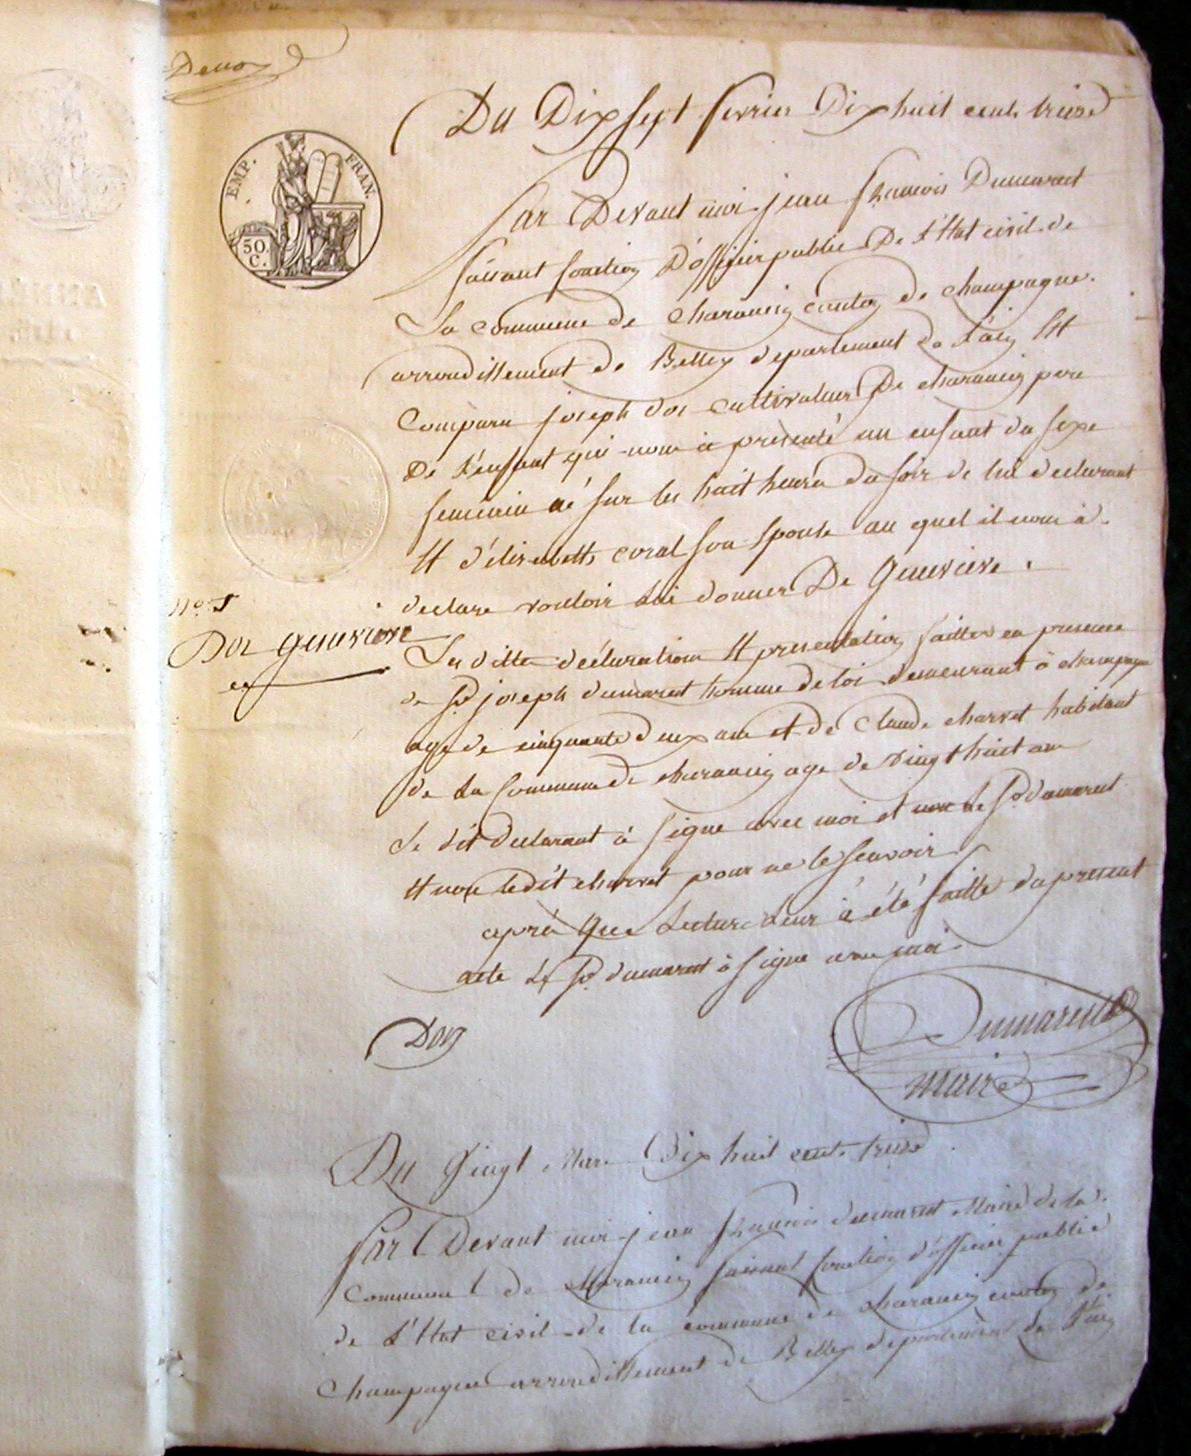 Du Dix sept fevrier Dix huit cents treize
EMP. FRAN.
50. C.
Par Devant moi jean françois Dumarest
faisant fonction D'officier public De L'Etat civil de
La commune de charancin canton de champagne
arrondissement de Belley departement de L'ain Et
Comparu joseph Dor cultivateur De charancin pere
De L'enfant qui nous à présenté un enfant du sexe
feminin né sur les huit heures du soir de lui declarant
Et d'élisabeth coral son Epouse au quel il nous à
declare vouloir lui donner De Genevieve.
N° 5
Dor Genevieve
Les dittes déclarations Et presentation faittes en presence
de Sr joseph dumarest homme de loi demeurant à champagne
age de cinquante deux ans et de Claude charvet habitant
de La Commune de charancin age de vingt huit ans
Le dit declarant à signe avec moi et le Sr dumarest
Et non ledit charvet pour ne le scavoir
après que Lecture Leur à été faitte du present
acte Le Sr dumarest à signe avec moi
Dor
Dumarest
maire
Du vingt Mars Dix huit cents treize
Par Devant moi jean francois dumarest Maire de la
Commune de charancin faisant fonction d'officier public
de L'Etat civil de la commune de charancin canton de
Champagne arrondissement de Belley departement de L'ain